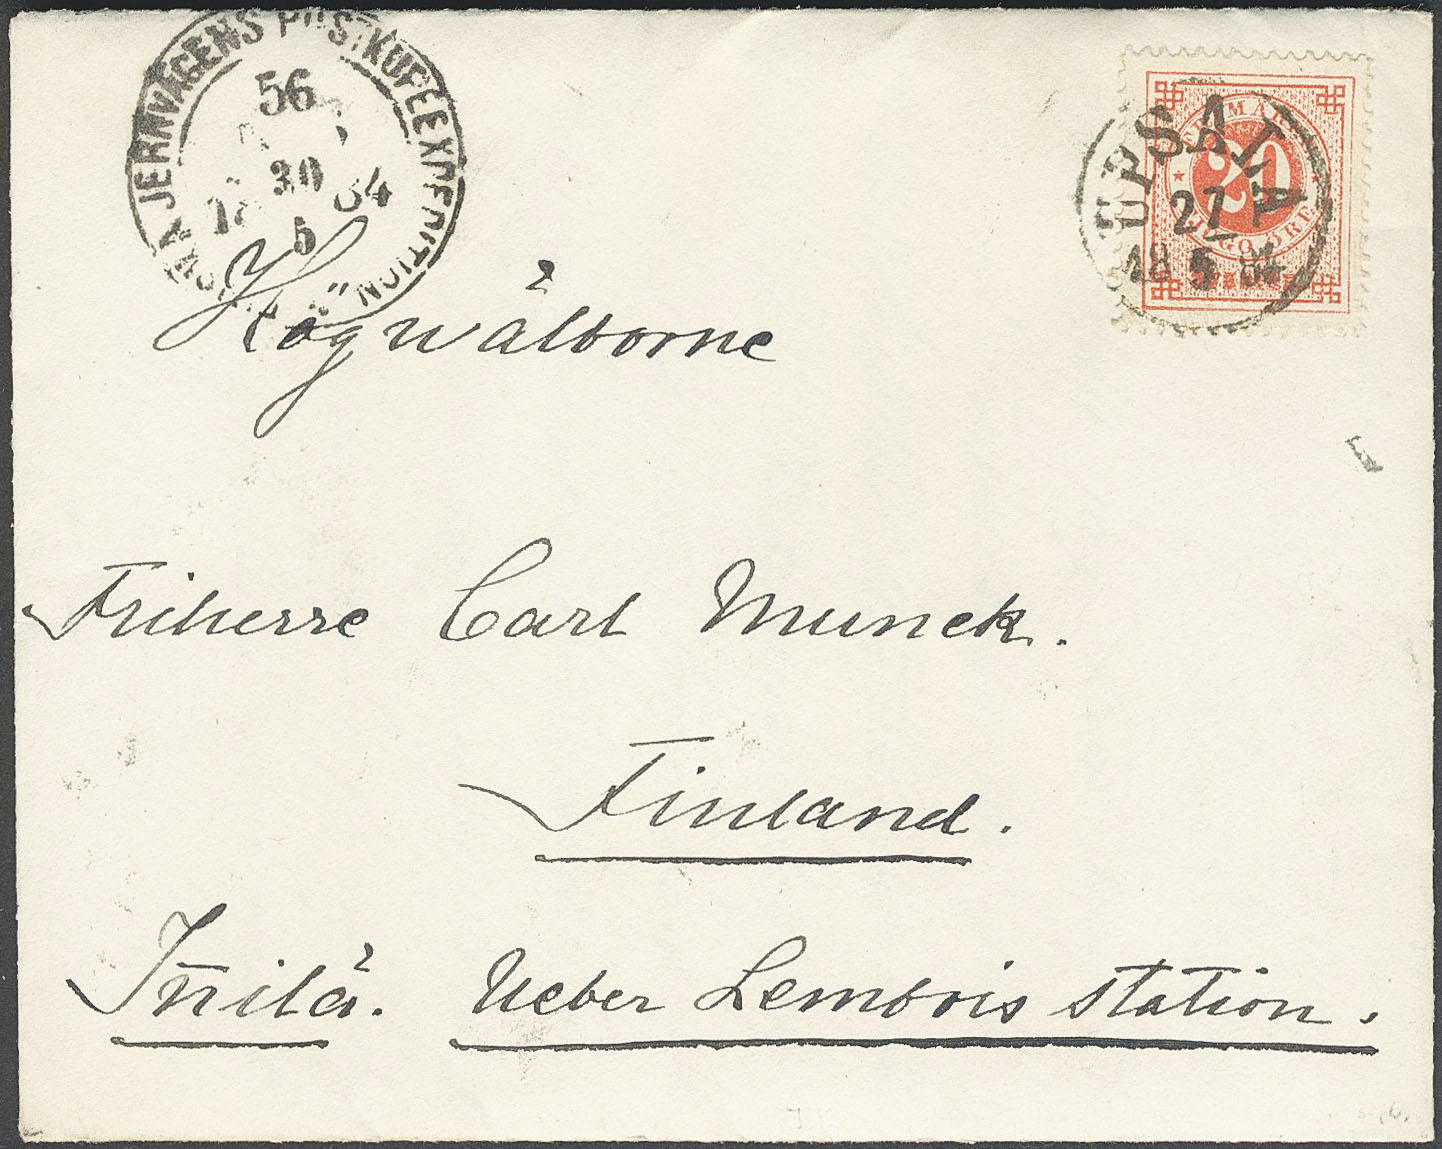 JERNVÄGENS POSTKUPEEXPEDITION
56
30
5
UPSALA
27
18 5 84
20
Högwälborne
Friherre Carl Munck.
Finland.
Ueber Lembois station.